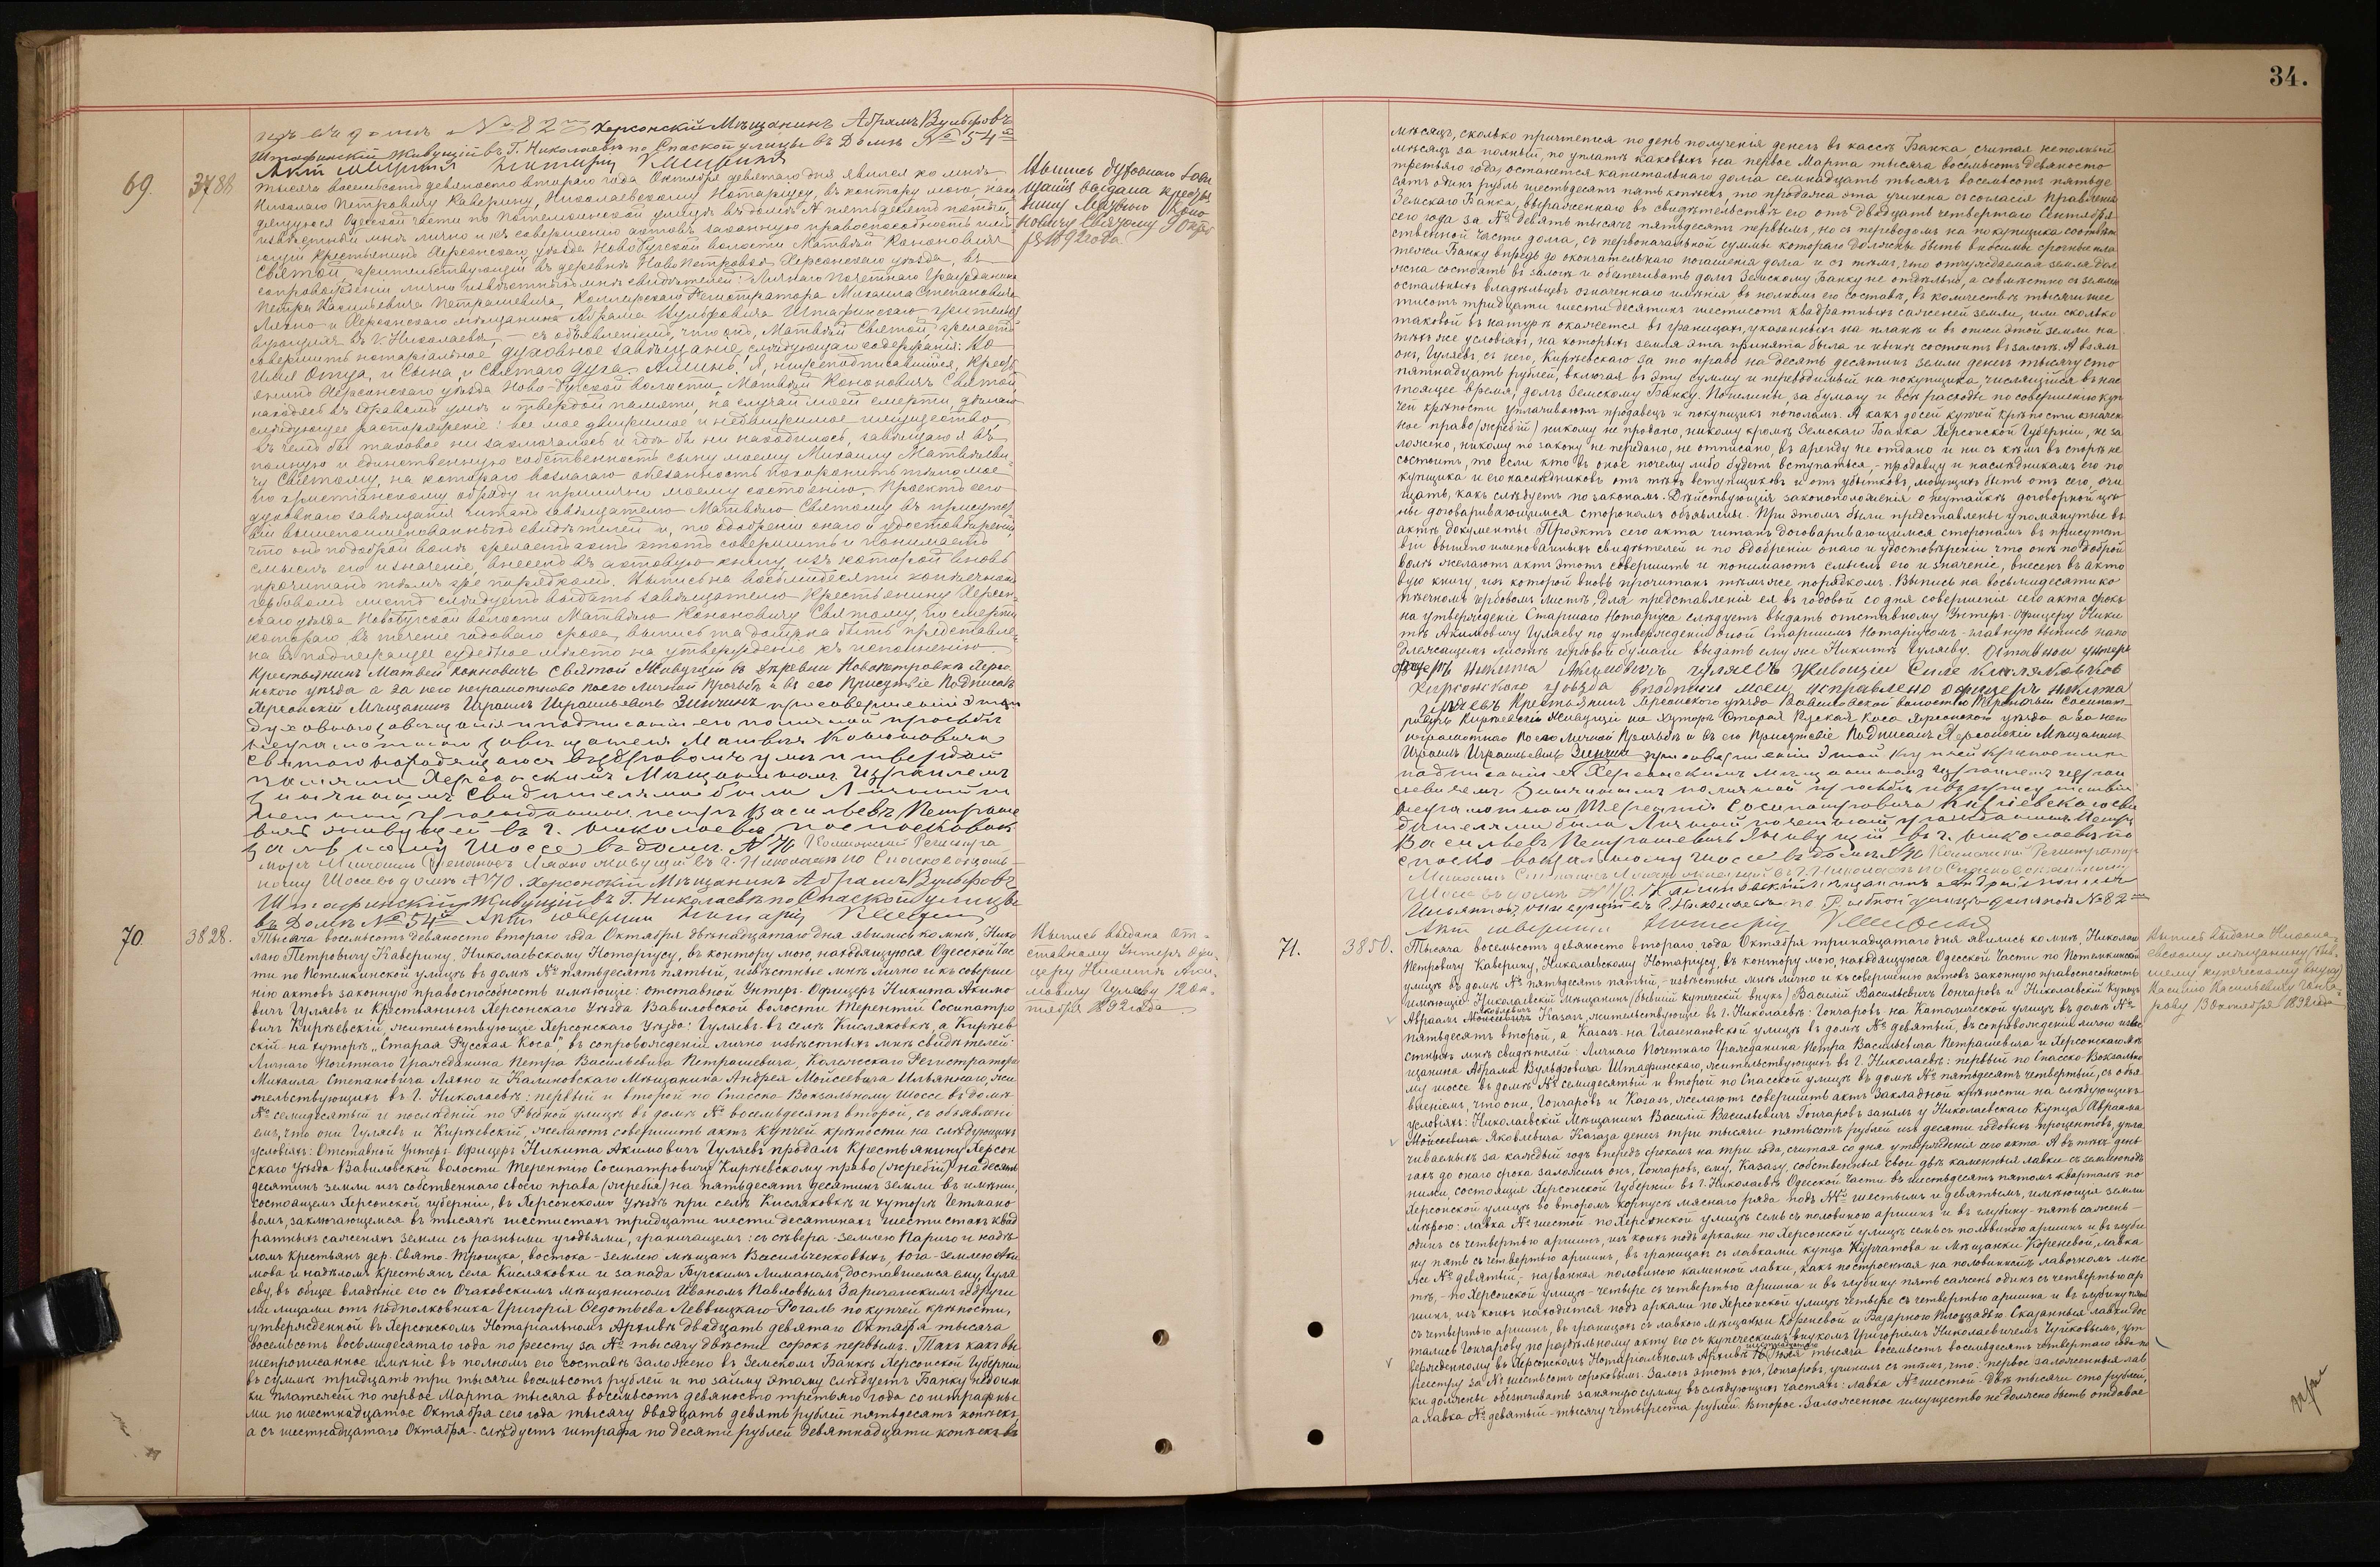 34.
домѣ № 82й Херсонскій Мѣщанинъ Абрамъ Вульфовъ
Штафинскій Живущій въ Г. Николаевѣ по Спаской улицы въ Домѣ № 54й
69.
3788
Тысяча восемьсотъ девяносто втораго года Октября девятаго дня явился ко мнѣ,
Николаю Петровичу Каверину, Николаевскому Нотаріусу, въ контору мою, нахо
дящуюся Одесской части по Потемкинской улицѣ въ домѣ № пятьдесятъ пятый,
извѣстный мнѣ лично и къ совершенію актовъ законную правоспособность имѣ
ющій Крестьянинъ Херсонскаго уѣзда Ново Бугской волости Матвѣй Канановичъ
Святой, жительствующій въ деревнѣ Ново Петровкѣ Херсонскаго уѣзда, въ
сопровожденіи лично извѣстныхъ мнѣ свидѣтелей: Личнаго Почетнаго Гражданина
Петра Васильевича Петрашевича, Коллежскаго Регистратора Михаила Степановича
Ляхно и Херсонскаго мѣщанина Абрама Вульфовича Штафинскаго жительст
вующихъ въ г. Николаевѣ, съ объявленіемъ, что онъ, Матвѣй Святой, желаетъ
совершить нотаріальное духовное завѣщаніе, слѣдующаго содержанія: Во
Имя Отца, и Сына, и Святаго Духа. Аминь! Я, нижеподписавшійся, Кресть
янинъ Херсонскаго уѣзда Ново-Бугской волости Матвѣй Канановичъ Святой,
находясь въ здравомъ умѣ и твердой памяти, на случай моей смерти, дѣлаю
слѣдующее распоряженіе: все мое движимое и недвижимое имущество,
въ чемъ бы таковое ни заключалось и гдѣ бы ни находилось, завѣщаю я въ
полную и единственную собственность сыну моему Михаилу Матвѣеви-
чу Святому, на котораго возлагаю обязанность похоронить тѣло мое
по христіанскому обряду и приличью моему состоянію. Проектъ сего
духовнаго завѣщанія читанъ завѣщателю Матвѣю Святому въ присутст
віи вышепоименованныхъ свидѣтелей и, по одобреніи онаго и удостовѣреніи,
что онъ по доброй волѣ желаетъ актъ этотъ совершить и понимаетъ
смыслъ его и значеніе, внесенъ въ актовую книгу, изъ которой вновь
прочитанъ тѣмъ же порядкомъ. Выпись на восьмидесяти копѣечномъ
гербовомъ листѣ слѣдуетъ выдать завѣщателю Крестьянину Херсон-
скаго уѣзда Новобугской волости Матвѣю Канановичу Святому, по смерти
котораго въ теченіе годоваго срока, выпись та должна быть представле-
на въ подлежащее судебное мѣсто на утвержденіе къ исполненію.
Крестьянинъ Матвей Канновичъ Святой Живущій в Деревни Новопетровкѣ Херсо
нского уезда а за него неграмотново поего Личной Прозьбѣ и въ его Присутвіе Подписалъ
Херсонскій Мѣщанинъ Израиль Израильевичъ Зинчинъ при совершеніи этаго
духовнаго завѣщанія и подписаніи его по личной просьбѣ
неграмотнаго завѣщателя Матвѣя Канановича
Святаго находящагося въ здравомъ умѣ и твердой
памяти Херсонскимъ Мѣщаниномъ Израилемъ
Зинчинымъ свидѣтелями были Личный
почетный гражданинъ петръ Васильевъ Петраше
вичъ живущей въ г. николаевѣ по спасковок
зальному Шоссе въ домѣ № 70 Коллежскій Регистра
торъ Михаилъ Степановъ Ляхно живущій въ г. Николаевѣ по Спасковокзаль-
ному Шоссе въ домѣ № 70. Херсонскій Мѣщанинъ Абрамъ Вульфовъ
Штафинскій Живущій въ Г. Николаевѣ по Спаской улицы
въ Домѣ № 54й Актъ совершилъ Нотаріусъ
Выпись духовнаго завѣ
щанія выдана крестья
нину Матвѣю Кано
новичу Святому 9 Октяб
ря 1892 года
70.
3828.
Тысяча восемьсотъ девяносто втораго года Октября двѣнадцатаго дня явились ко мнѣ, Нико
лаю Петровичу Каверину, Николаевскому Нотаріусу, въ контору мою, находящуюся Одесской Час
ти по Потемкинской улицѣ въ домѣ № пятьдесятъ пятый, извѣстные мнѣ лично и къ соверше
нію актовъ законную правоспособность имѣющіе: отставной Унтеръ-Офицеръ Никита Акимо
вичъ Гуляевъ и Крестьянинъ Херсонскаго Уѣзда Вавиловской волости Терентій Сосипатро
вичъ Кирѣевскій, жительствующіе Херсонскаго Уѣзда: Гуляевъ въ селѣ Кисляковкѣ, а Кирѣев
скій на хуторѣ „Старая Русская Коса", въ сопровожденіи лично извѣстныхъ мнѣ свидѣтелей:
Личнаго Почетнаго Гражданина Петра Васильевича Петрашевича, Коллежскаго Регистратора
Михаила Степановича Ляхно и Калиновскаго Мѣщанина Андрея Мойсеевича Ильяннаго, жи
тельствующихъ въ г. Николаевѣ: первый и второй по Спасско-Вокзальному Шоссе въ домѣ
№ семидесятый и послѣдній по Рыбной улицѣ въ домѣ № восемьдесятъ второй, съ объявлені
емъ, что они Гуляевъ и Кирѣевскій, желаютъ совершить актъ купчей крѣпости на слѣдующихъ
условіяхъ: Отставной Унтеръ-Офицеръ Никита Акимовичъ Гуляевъ продалъ Крестьянину Херсон
скаго Уѣзда Вавиловской волости Терентію Сосипатровичу Кирѣевскому право (жребій) на десять
десятинъ земли изъ собственнаго своего права (жребія) на пятьдесятъ десятинъ земли въ имѣніи,
состоящемъ Херсонской губерніи, въ Херсонскомъ Уѣздѣ при селѣ Кисляковкѣ и хуторѣ Гетмано
вомъ, заключающемся въ тысячѣ шестистахъ тридцати шести десятинахъ шестистахъ квад
ратныхъ саженяхъ земли съ разными угодьями, граничащемъ: съ сѣвера-землею Паризо и надѣ
ломъ Крестьянъ дер. Свято-Троицка, востока-землею мѣщанъ Васильченковыхъ, юга-землею Аки
мова и надѣломъ Крестьянъ села Кисляковки и запада Бугскимъ Лиманомъ, доставшемся ему, Гуля
еву, въ общее владѣніе его съ Очаковскимъ Мѣщаниномъ Иваномъ Павловымъ Заричанскимъ и други
ми лицами отъ Подполковника Григорія Федотьева Леввицкаго-Рогаль по купчей крѣпости,
утвержденной въ Херсонскомъ Нотаріальномъ Архивѣ двадцать девятаго Октября тысяча
восемьсотъ восьмидесятаго года по реестру за № тысячу двѣсти сорокъ первымъ. Такъ какъ вы
шепрописанное имѣніе въ полномъ его составѣ заложено въ Земскомъ Банкѣ Херсонской Губерніи
въ суммѣ тридцать три тысячи восемьсотъ рублей и по займу этому слѣдуетъ Банку недоим
ки платежей по первое Марта тысяча восемьсотъ девяносто третьяго года со штрафны
ми по шестнадцатое Октября сего года тысячу двадцать девять рублей пятьдесятъ копѣекъ
а съ шестнадцатаго Октября-слѣдуетъ штрафа по десяти рублей девятнадцати копѣекъ въ
Выпись выдана От-
ставному Унтеръ-Офи-
церу Никитѣ Аки-
мовичу Гуляеву 12 Ок-
тября 1892 года
мѣсяцъ, сколько причтется по день полученія денегъ въ кассѣ Банка, считая неполный
мѣсяцъ за полный, по уплатѣ каковыхъ на первое Марта тысяча восемьсотъ девяносто
третьяго года останется капитальнаго долга семнадцать тысячъ восемьсотъ пятьде
сятъ одинъ рубль шестьдесятъ пять копѣекъ, то продажа эта учинена съ согласія Правленія
Земскаго Банка, выраженнаго въ свидѣтельствѣ его отъ двадцать четвертаго Сентября
сего года за № девять тысячъ пятьдесятъ первымъ, но съ переводомъ на покупщика соотвѣт
ственной части долга, съ первоначальной суммы котораго должны быть вносимы срочные пла
тежи Банку впредь до окончательнаго погашенія долга и съ тѣмъ, что отчуждаемая земля дол
жна состоять въ залогѣ и обезпечивать долгъ Земскому Банку не отдѣльно, а совмѣстно съ землею
остальныхъ владѣльцевъ означеннаго имѣнія въ полномъ его составѣ, въ количествѣ тысячи шес
тисотъ тридцати шести десятинъ шестисотъ квадратныхъ саженей земли, или сколько
таковой въ натурѣ окажется въ границахъ, указанныхъ на планѣ и въ описи этой земли на
тѣхъ же условіяхъ, на которыхъ земля эта принята была и нынѣ состоитъ въ залогѣ. А взялъ
онъ, Гуляевъ, съ него, Кирѣевскаго за то право на десять десятинъ земли денегъ тысячу сто
пятнадцать рублей, включая въ эту сумму и переводимый на покупщика, числящійся въ нас
тоящее время, долгъ Земскому Банку. Пошлины, за бумагу и всѣ расходы по совершенію куп
чей крѣпости уплачиваютъ продавецъ и покупщикъ пополамъ. А какъ до сей купчей крѣпости означен
ное право (жребій) никому не продано, никому кромѣ Земскаго Банка Херсонской Губерніи, не за
ложено, никому по закону не передано, не отписано, въ аренду не отдано и ни съ кѣмъ въ спорѣ не
состоитъ, то если кто въ оное почему либо будетъ вступаться,-продавцу и наслѣдникамъ его по
купщика и его наслѣдниковъ отъ тѣхъ вступщиковъ и отъ убытковъ, могущихъ быть отъ сего, очи
щать, какъ слѣдуетъ по законамъ. Дѣйствующія законоположенія о неутайкѣ договорной цѣ
ны договаривающимся сторонамъ объявлены. При этомъ были представлены упомянутые въ
актѣ документы. Проэктъ сего акта читанъ договаривающимся сторонамъ въ присутст
віи вышепоименованныхъ свидѣтелей и по одобреніи онаго и удостовѣреніи что они по доброй
волѣ желаютъ актъ этотъ совершить и понимаютъ смыслъ его и значеніе, внесенъ въ акто
вую книгу, изъ которой вновь прочитанъ тѣмъ же порядкомъ. Выпись на восьмидесяти ко
пѣечномъ гербовомъ листѣ, для представленія ея въ годовой со дня совершенія сего акта срокъ
на утвержденіе Старшаго Нотаріуса слѣдуетъ выдать отставному Унтеръ-Офицеру Ники
тѣ Акимовичу Гуляеву по утвержденіи оной Старшимъ Нотаріусомъ-главную выпись на на
длежащемъ листѣ гербовой бумаги выдать ему же Никитѣ Гуляеву. Отставной унтеръ
офицеръ Никита Акимовичъ Гуляевъ Живющій Силе Кисляковкѣ
Херсонскаго уѣзда в подписи моей исправлено офицеръ никита
гуляевъ Крестьянинъ Херсонского уезда Вавиловской волости Терентій Сосипат-
ровичъ Киреевскій Живущій на Хуторѣ Старая Руская Коса Херсонской уезда а за него
неграмотного По его Личной Прозьбѣ и въ его Присутвіе Подписалъ Херсонскій Мѣщанинъ
Израиль Израильевичъ Зинчин при совершеніи этой купчей крепости и
подписаніи ея Херсонскимъ Мѣщаниномъ Израилемъ Израи
левичемъ Зинчинымъ по личной просьбѣ и въ присутствіи
неграмотнаго Терентія Сосипатровича Киріевскаго сви
дителями были Личный почетный гражданинъ Петръ
Васильевъ Петрашевичъ Живущій въ г. николаевѣ по
спаско вокзальному шоссе въ домѣ № 70 Коллежскій Регистраторъ
Михаилъ Степановъ Ляхно живущій въ г. Николаевѣ по Спасковокзальному
Шоссе въ домѣ № 70. Калиновскій мѣщанинъ Андрей
Ильянной живущій въ г. Николаевѣ по Рыбной улицѣ домѣ № 82й
Актъ совершилъ Нотаріусъ
71.
3850.
Тысяча восемьсотъ девяносто втораго года Октября тринадцатаго дня явились ко мнѣ, Николаю
Петровичу Каверину, Николаевскому Нотаріусу, въ контору мою, находящуюся Одесской Части по Потемкинской
улицѣ въ домѣ № пятьдесятъ пятый,-извѣстные мнѣ лично и къ совершенію актовъ законную правоспособность
имѣющіе: Николаевскій Мѣщанинъ (бывшій купеческій внукъ) Василій Васильевичъ Гончаровъ и Николаевскій Купецъ
Авраамъ Яковлевичъ Мойсеевичъ Казазъ, жительствующіе въ г. Николаевѣ: Гончаровъ-на Католической улицѣ въ домѣ №
пятьдесятъ второй, а Казазъ-на Глазенаповской улицѣ въ домѣ № девятый, въ сопровожденіи лично извѣ
стныхъ мнѣ свидѣтелей: Личнаго Почетнаго Гражданина Петра Васильевича Петрашевича и Херсонскаго Мѣ
щанина Абрама Вульфовича Штафинскаго, жительствующихъ въ г. Николаевѣ: первый по Спасско-Вокзально
му шоссе въ домѣ № семидесятый и второй по Спасской улицѣ въ домѣ № пятьдесятъ четвертый, съ объя
вленіемъ, что они, Гончаровъ и Казазъ, желаютъ совершить актъ Закладной крѣпости на слѣдующихъ
условіяхъ: Николаевскій Мѣщанинъ Василій Васильевичъ Гончаровъ занялъ у Николаевскаго Купца Авраама
Мойсеевича Яковлевича Казаза денегъ три тысячи пятьсотъ рублей изъ десяти годовыхъ процентовъ, упла
чиваемыхъ за каждый годъ впередъ срокомъ на три года, считая со дня утвержденія сего акта. А въ тѣхъ день
гахъ до онаго срока заложилъ онъ, Гончаровъ, ему, Казазу, собственные свои двѣ каменныя лавки съ землею подъ
ними, состоящія Херсонской Губерніи въ г. Николаевѣ Одесской части въ шестьдесятъ пятомъ кварталѣ по
Херсонской улицѣ во второмъ корпусѣ мяснаго ряда подъ №№ шестымъ и девятымъ, имѣющія земли
мѣрою: лавка № шестой-по Херсонской улицѣ семь съ половиною аршинъ и въ глубину-пять саженъ-
одинъ съ четвертью аршинъ, изъ коихъ подъ арками по Херсонской улицѣ семь съ половиною аршинъ и въ глуби
ну пять съ четвертью аршинъ, въ границахъ съ лавками купца Курчатова и Мѣщанки Кореневой, лавка
же № девятый,-названная половиною каменной лавки, какъ построенная на половинномъ лавочномъ мѣс
тѣ,-по Херсонской улицѣ-четыре съ четвертью аршина и въ глубину пять саженъ одинъ съ четвертью ар
шинъ, изъ коихъ находится подъ арками по Херсонской улицѣ четыре съ четвертью аршина и въ глубину пять
съ четвертью аршинъ, въ границахъ съ лавкою Мѣщанки Кореневой и Базарною Площадью. Сказанныя лавки дос
тались Гончарову по раздѣльному акту его съ купеческимъ внукомъ Григоріемъ Николаевичемъ Чуйковымъ, ут
вержденному въ Херсонскомъ Нотаріальномъ Архивѣ тысяча восемьсотъ восемьдесятъ четвертаго года по
реестру за № шестьсотъ сороковымъ. Залогъ этотъ онъ, Гончаровъ, учинилъ съ тѣмъ, что: первое заложенныя лав
ки должны обезпечивать занятую сумму въ слѣдующихъ частяхъ: лавка № шестой-двѣ тысячи сто рублей,
а лавка № девятый-тысячу четыреста рублей. Второе Заложенное имущество не должно быть отдавае
Выпись выдана Никола-
евскому мѣщанину (быв-
шему купеческому внуку)
Василію Васильевичу Гонча-
рову 13 Октября 1892 года